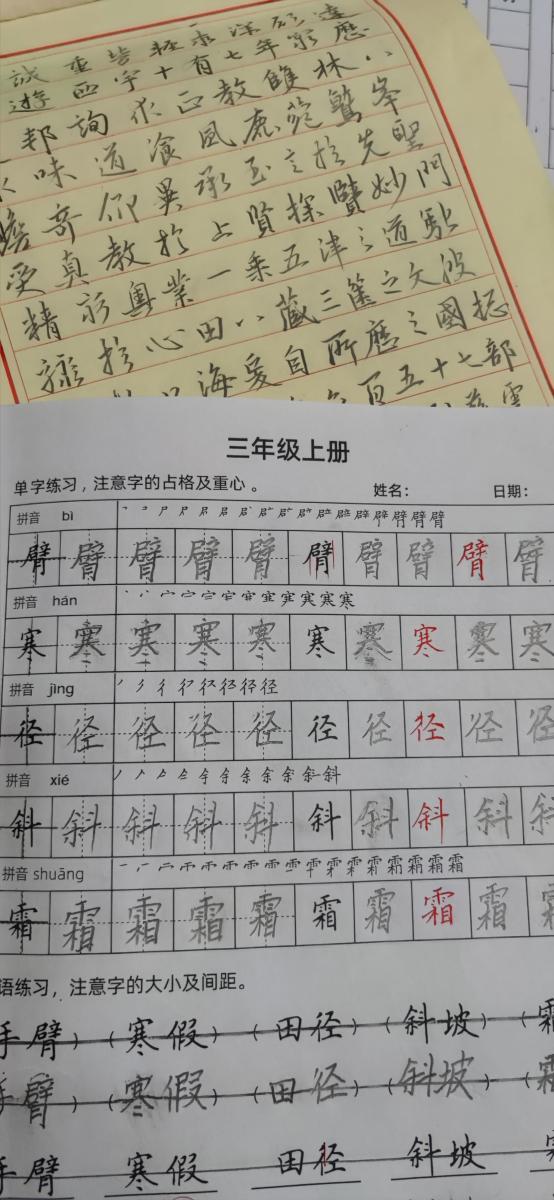 誠重勞輕求深願達
遊西宇十有七年窮歷
邦詢求正教雙林八
味道湌風鹿菀鷲峯
瞻奇仰異承至言於先聖
受真教於上賢探賾妙門
精窮奧業一乘五津之道馳
驟於心田八藏三篋之文波
海爰自所歷之國揔
百五十七部
雲
三年级上册
单字练习，注意字的占格及重心。 姓名： 日期：
拼音 bì
臂 臂 臂 臂 臂 臂 臂 臂 臂 臂
拼音 hán
寒 寒 寒 寒 寒 寒 寒 寒 寒 寒
拼音 jìng
径 径 径 径 径 径 径 径 径 径
拼音 xié
斜 斜 斜 斜 斜 斜 斜 斜 斜 斜
拼音 shuāng
霜 霜 霜 霜 霜 霜 霜 霜 霜 霜
语练习，注意字的大小及间距。
手臂）（寒假）（田径）（斜坡）（霜
手臂）（寒假）（田径）（斜坡）（霜
手臂 寒假 田径 斜坡 霜